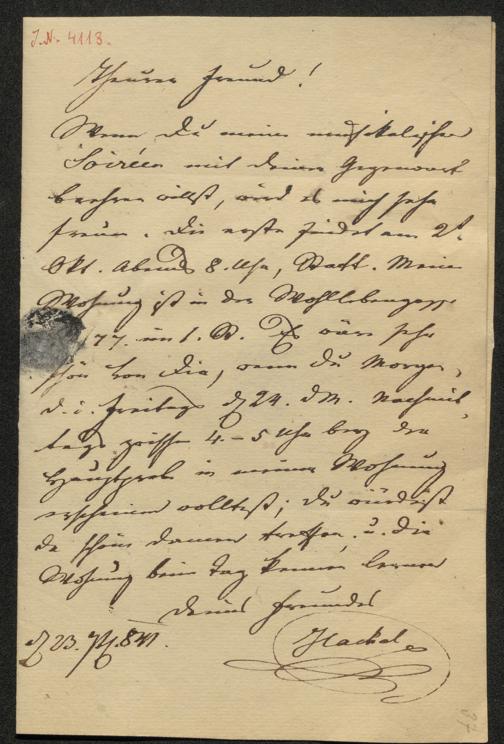 J.N. 4113.
Theurer Freund!
Wenn Du meine musikalischen
Soiréen mit Deiner Gegenwart
beehren willst, wird es mich sehr
freuen. Die erste findet am 2t
Okt. Abends 8. Uhr, Statt. Meine
Wohnung ist in der Wohllebengasse
77. im 1. St. Es wäre sehr
schön von Dir, wenn Du Morgen,
d. i. Freitags d 24. dM. Nachmit
tags zwischen 4-5 Uhr bey der
Hauptprobe in meiner Wohnung
erscheinen wolltest; Du würdest
da schöne Damen treffen, u. die
Wohnung beim Tag kennen lernen
Deines Freundes
Hackel
d 23. 841.